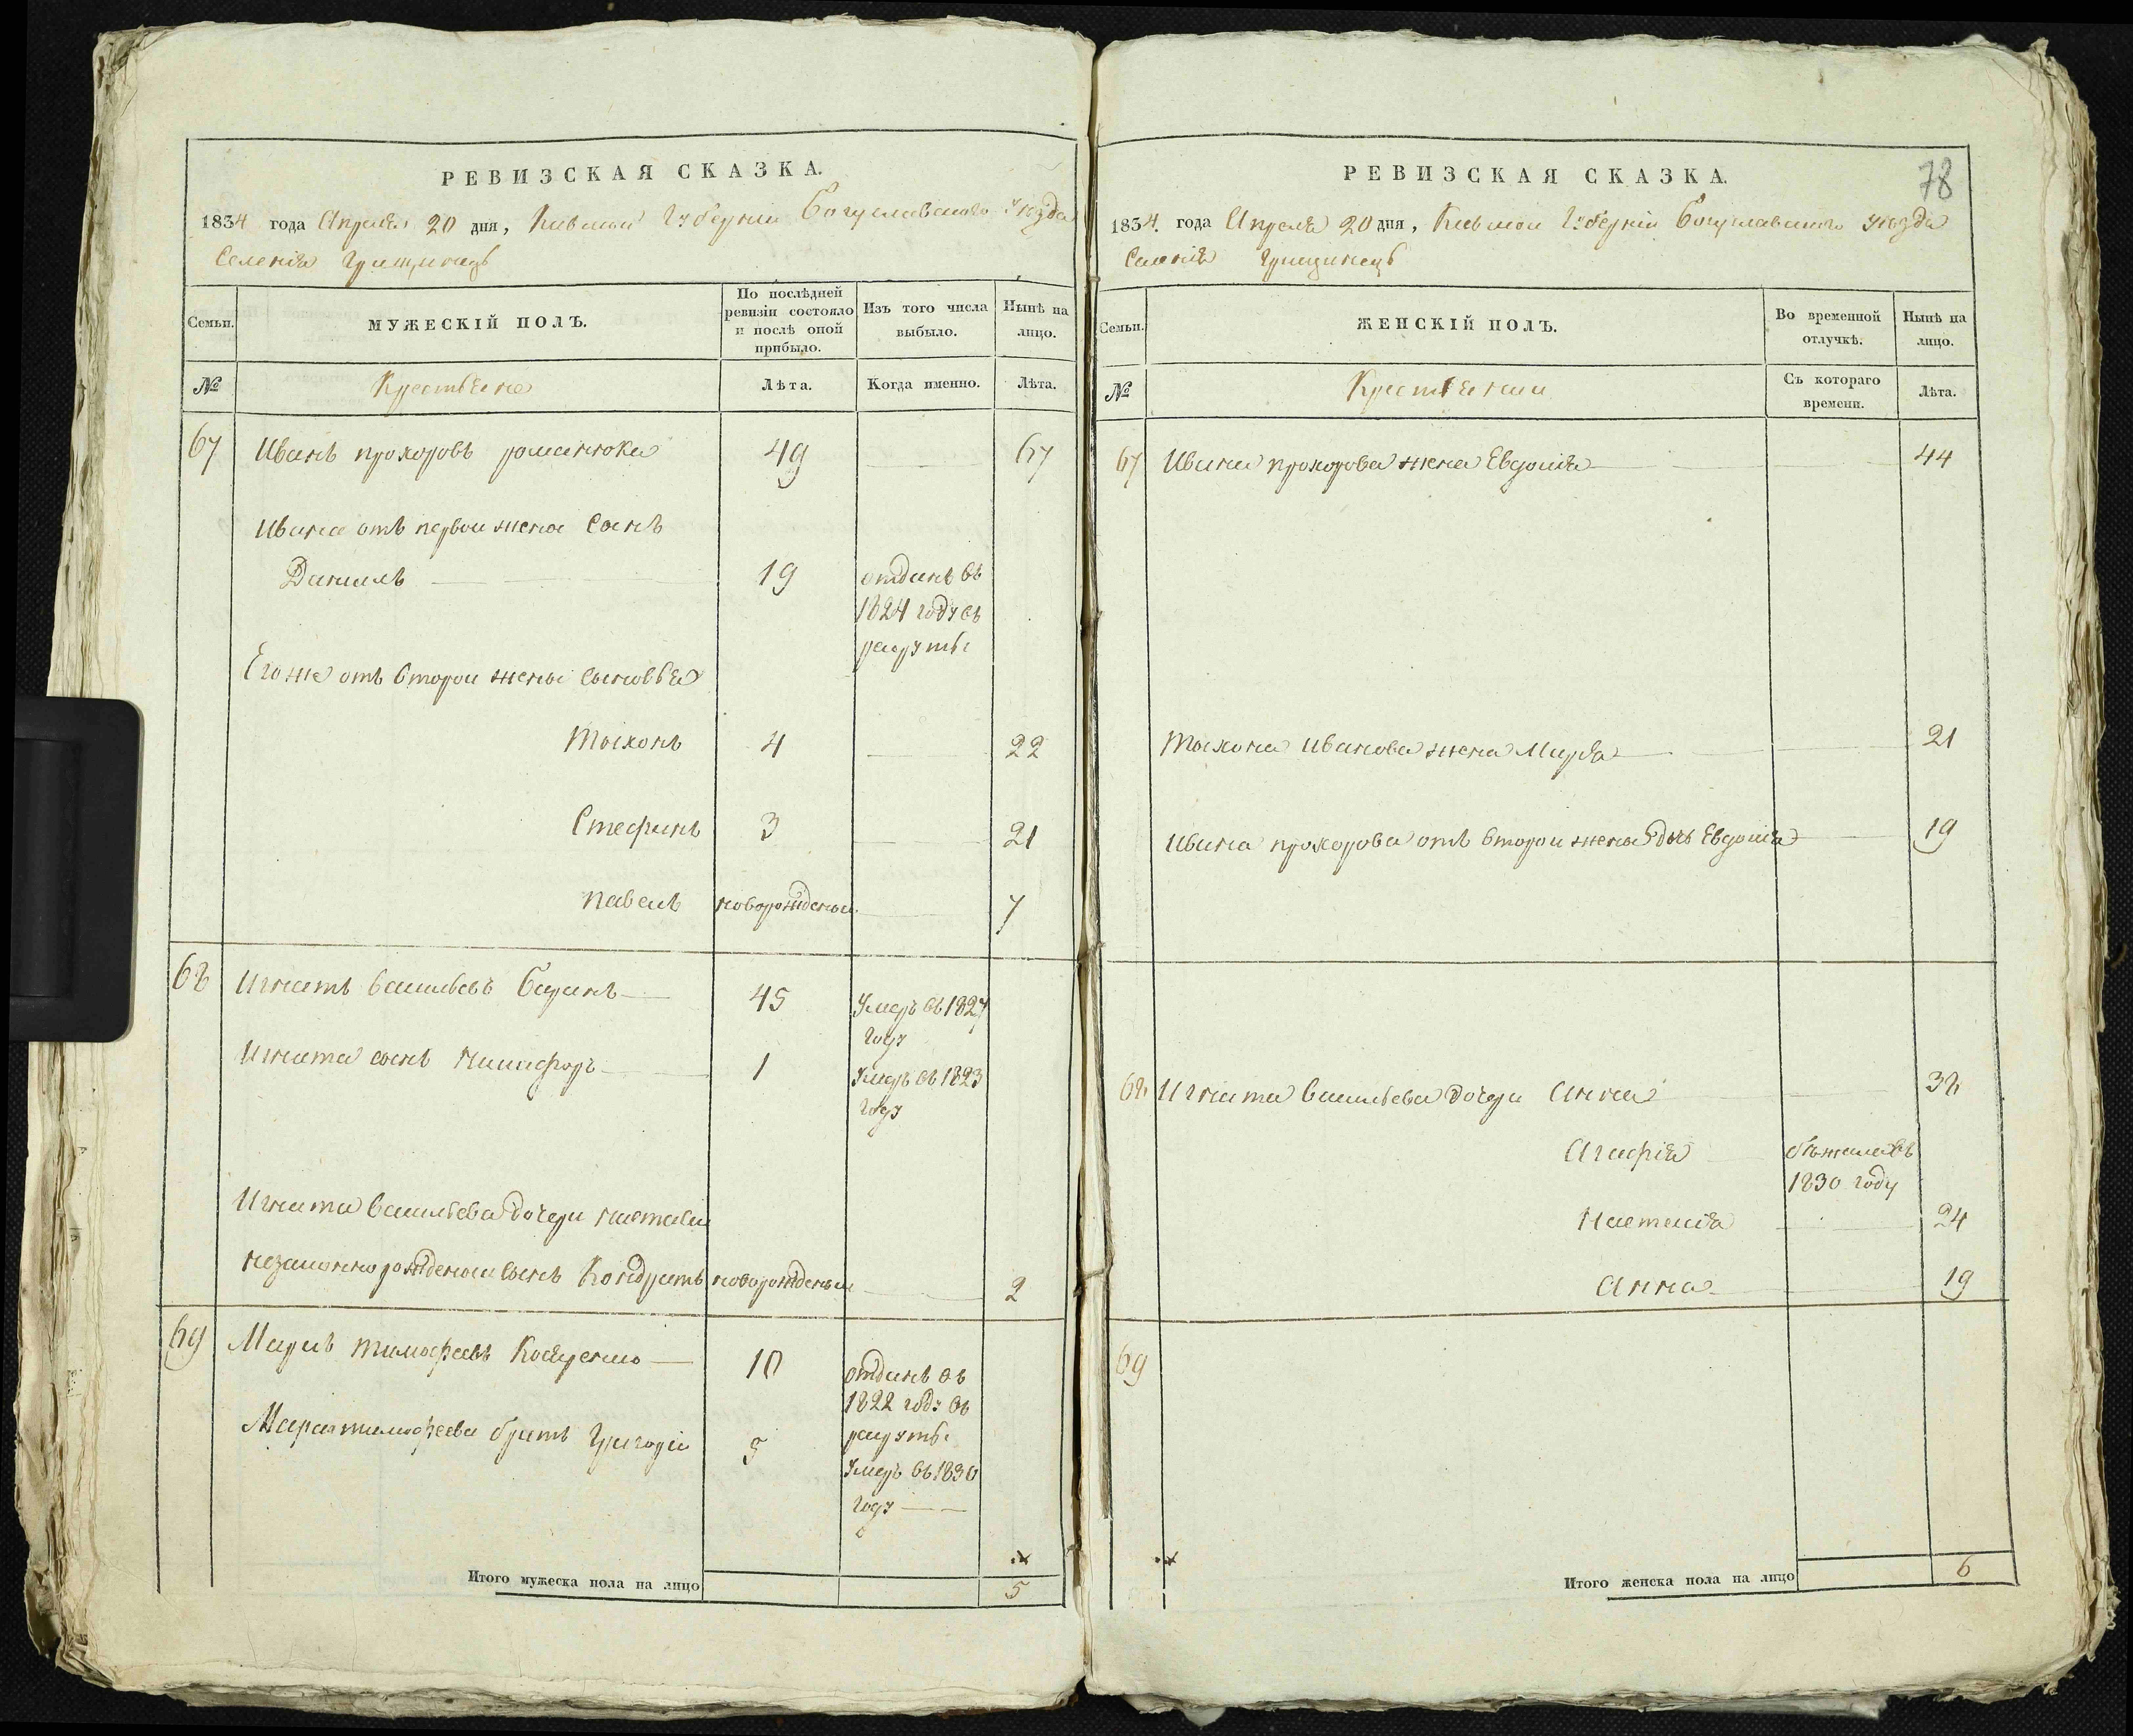 РЕВИЗСКАЯ СКАЗКА.
1834 года Апреля 20 дня, Киевской Губернии Богуславского уезда
Селения Грищинецъ
Семьи.
МУЖЕСКІЙ ПОЛЪ.
По послѣдней ревизіи состояло и послѣ оной прибыло.
Изъ того числа выбыло.
Нынѣ на лицо.
№
Крестьяне
Лѣта.
Когда именно.
Лѣта.
67 Иванъ прохоровъ романюка 49 67
Ивана отъ первои жены Сынъ
Данилъ 19 отданъ въ
1824 году въ
рекруты
Его же отъ второи жены сыновья
Тыхонъ 4 22
Стефанъ 3 21
павелъ новорожденыи 7
68 Игнатъ васильевъ Баранъ 45 Умеръ въ 1827
году
Игната сынъ никифоръ 1 Умеръ въ 1823
году
Игната васильева дочери настасіи
незаконнорожденыи сынъ Кондратъ новорожденыи 2
69 Марко тимофеевъ 10 отданъ въ
1822 году въ
рекруты
Марка тимофеева братъ Григорій 5
Умеръ въ 1830
году
Итого мужеска пола на лицо 5
78
РЕВИЗСКАЯ СКАЗКА.
1834. года Апреля 20 дня, Киевской Губерніи Богуславского уезда
Селенія Грищинецъ
Семьи.
ЖЕНСКІЙ ПОЛЪ.
Во временной отлучкѣ.
Нынѣ на лицо.
№
Крестьянки
Съ котораго времени.
Лѣта.
67 Ивана прохорова жена Евдокія 44
Тыхона Иванова жена Марія 21
Ивана прохорова отъ второи жены дочь Евдокія 19
68 Игната васильева дочери Анна 38
Агафія бежала въ
1830 году
Настасія 24
Анна 19
69
Итого женска пола на лицо 6